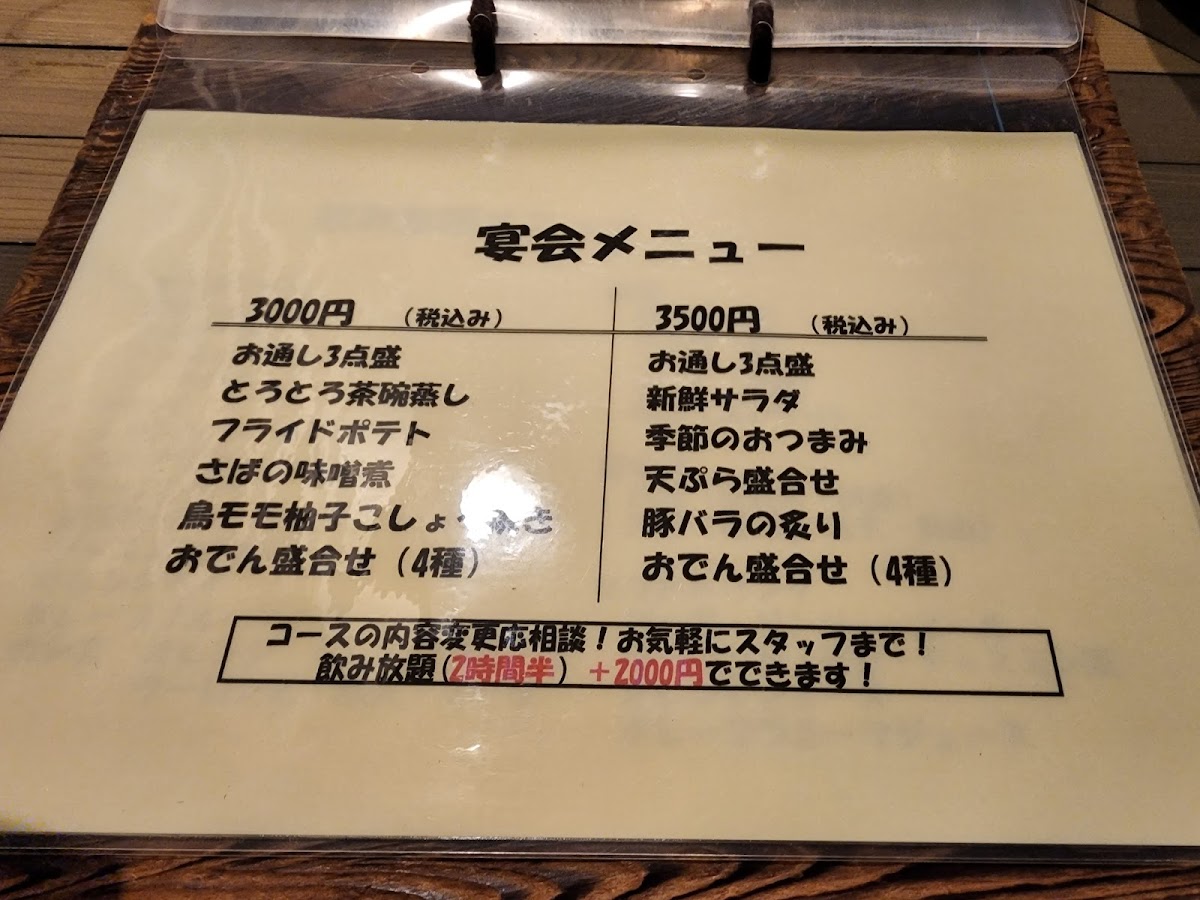 宴会メニュー
3000円 (税込み)
お通し3点盛
とろとろ茶碗蒸し
フライドポテト
さばの味噌煮
鳥モモ柚子こしょ
おでん盛合せ (4種)
3500円 (税込み)
お通し3点盛
新鮮サラダ
季節のおつまみ
天ぷら盛合せ
豚バラの炙り
おでん盛合せ (4種)
コースの内容変更応相談！お気軽にスタッフまで！
飲み放題(2時間半) +2000円でできます！